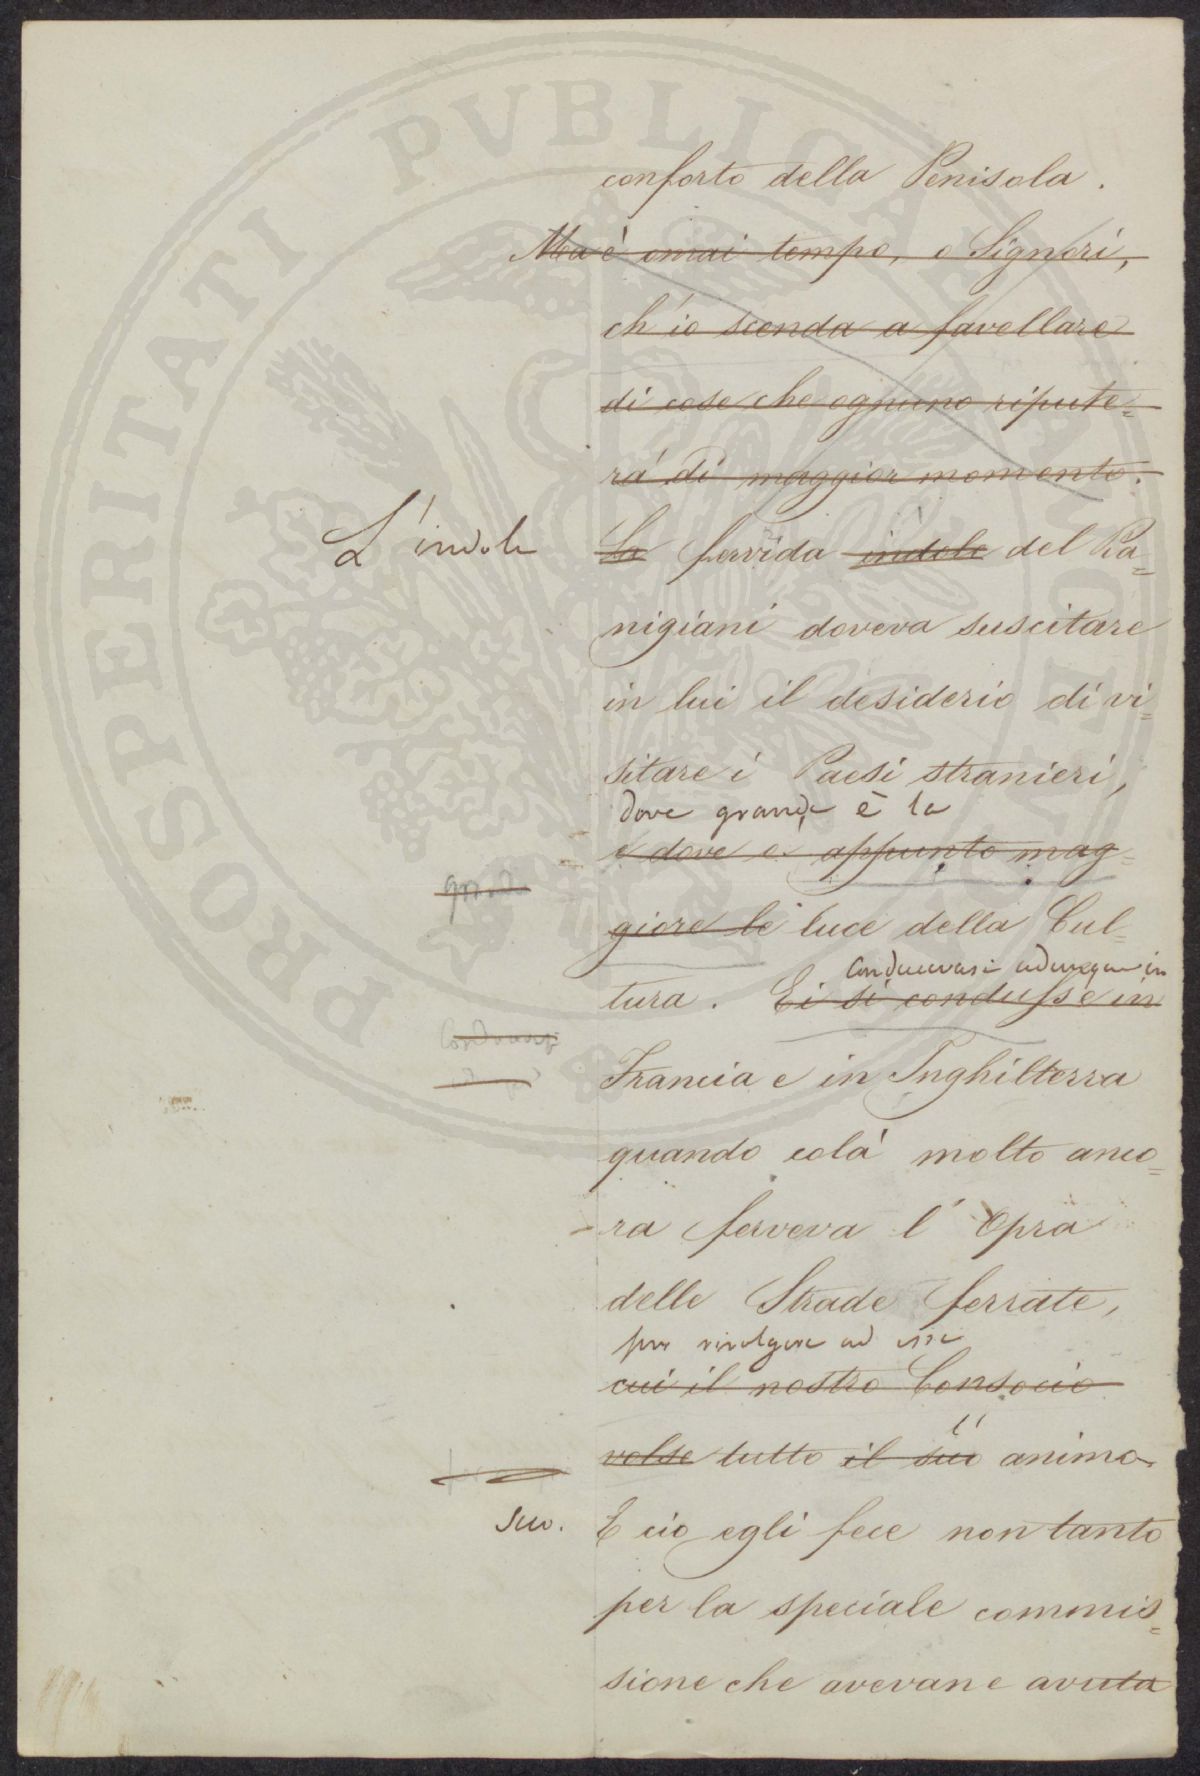 conforto della Penisola.
Ma è omai tempo, o Signori,
ch'io scenda a favellare
di cose che ognuno repute=
rà di maggior momento.
L'indole
La fervida indole del Ra=
nigiani doveva suscitare
in lui il desiderio di vi=
sitare i Paesi stranieri,
dove grande è la
e dove è appunto mag=
giore la luce della Cul=
Conducevasi adunque in
tura. Ei si condusse in
Francia e in Inghilterra
quando colà molto anco=
ra ferveva l'Opra
delle Strade ferrate,
per rivolgere ad esse
cui il nostro Consocio
l'
volse tutto il suo animo
suo.
E ciò egli fece non tanto
per la speciale commis=
sione che avevane avuta
PROSPERITATI PVBLICAE